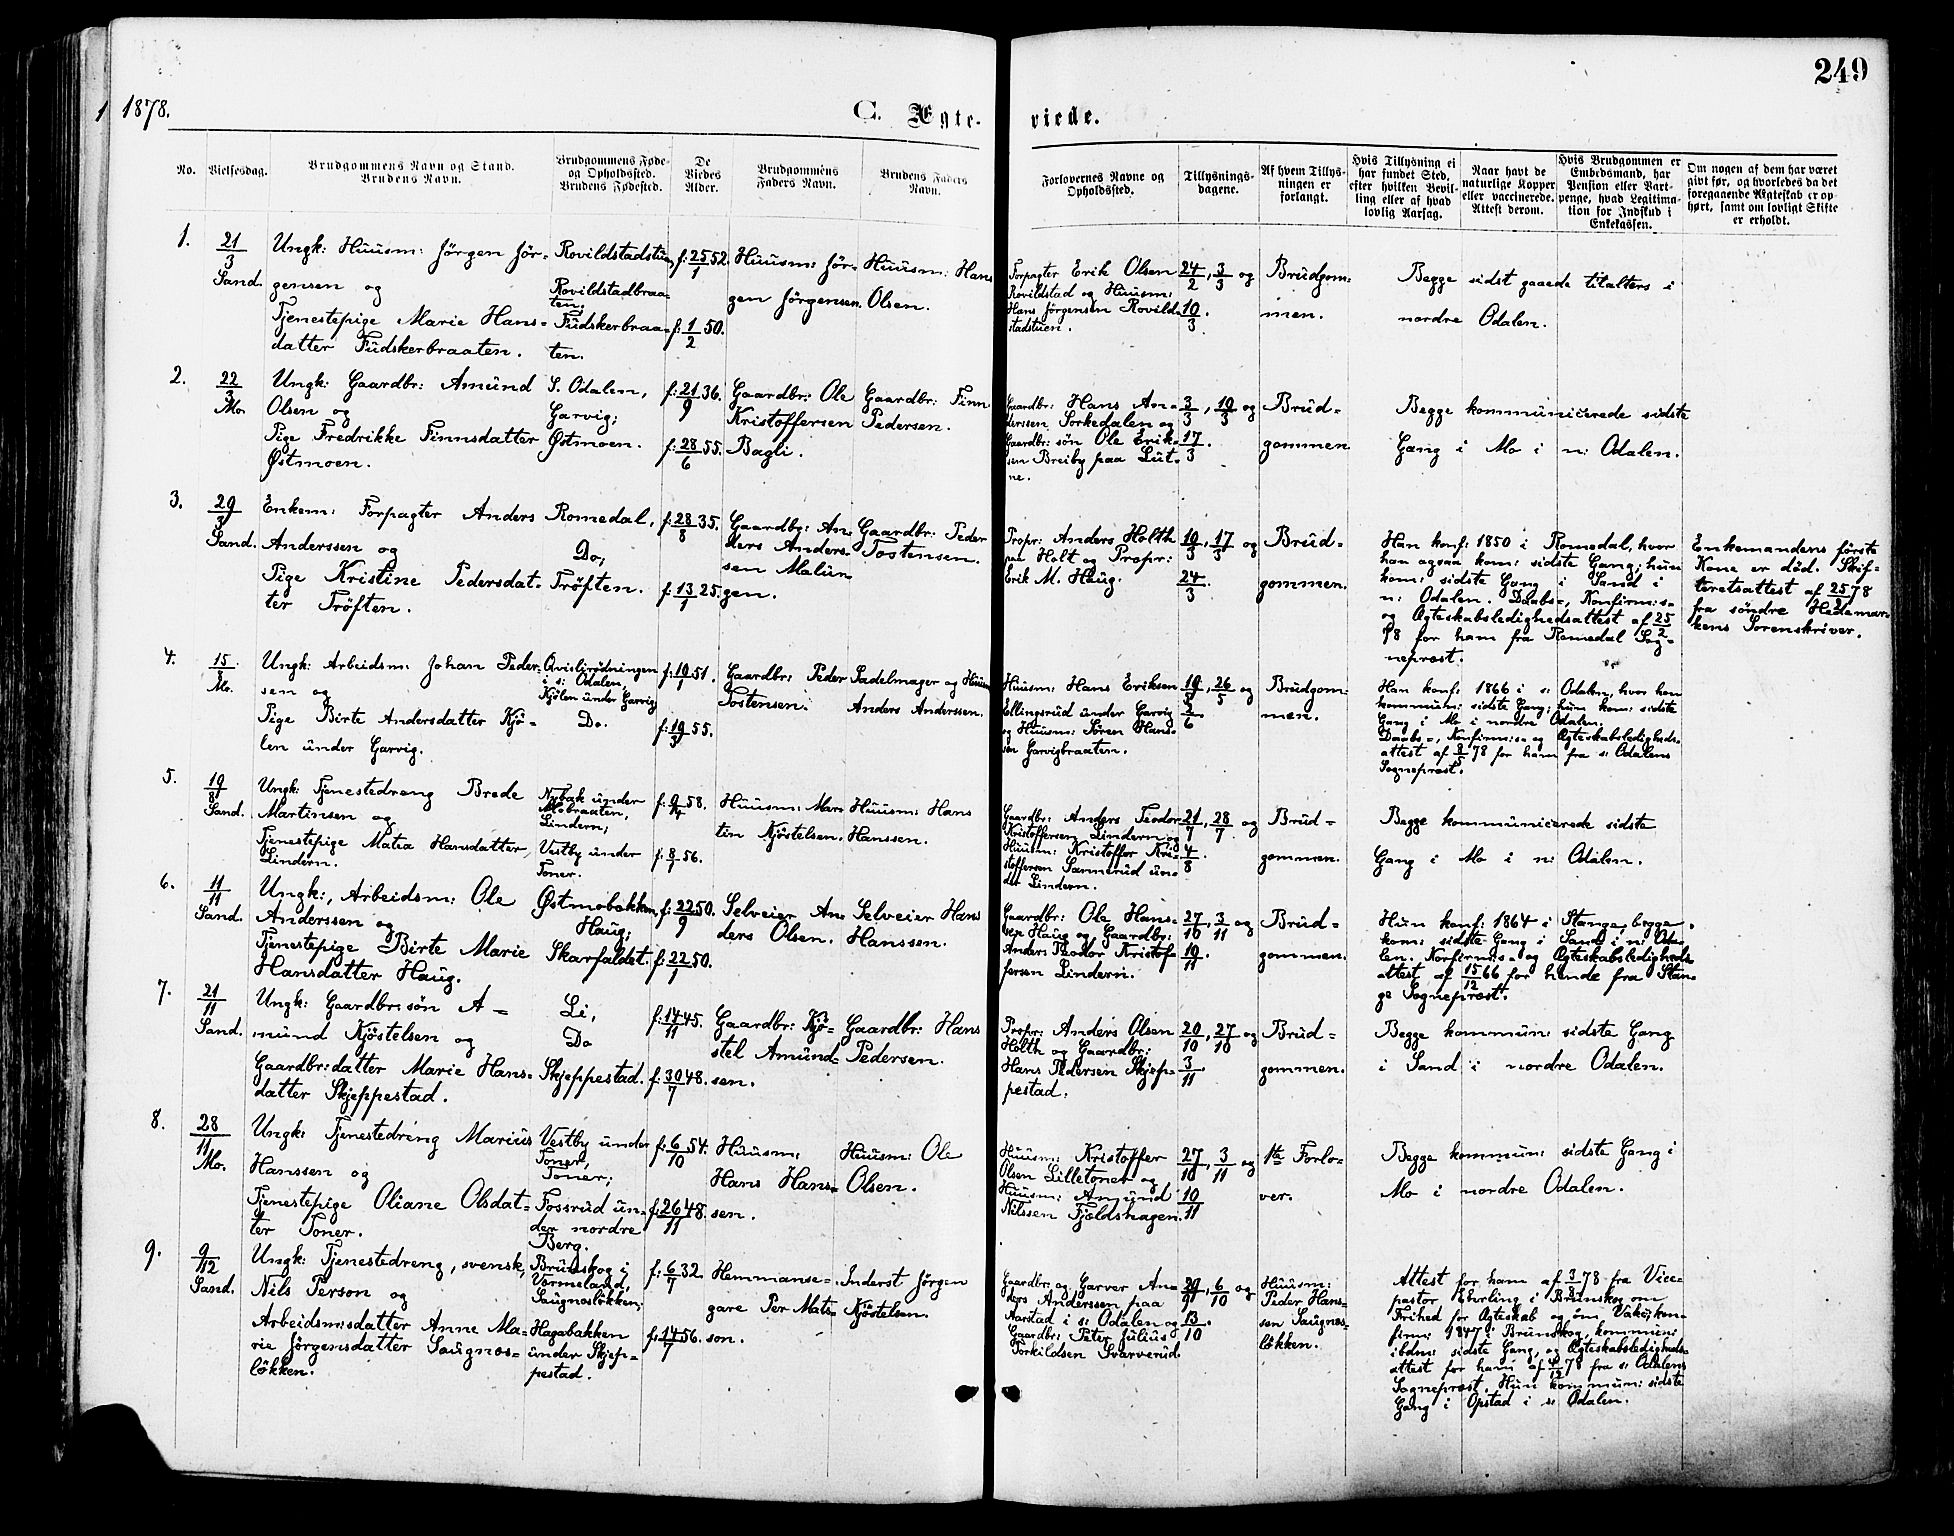 249
1878.
C. Ægte-
viede.
No.
Vielsesdag.
Brudgommens Navn og Stand.
Brudens Navn.
Brudgommens Føde-
og Opholdssted.
Brudens Fødested.
De
Viedes
Alder.
Brudgommens
Faders Navn.
Brudens Faders
Navn.
Forlovernes Navne og
Opholdssted.
Tillysnings-
dagene.
Af hvem Tillys-
ningen er
forlangt.
Hvis Tillysning ei
har fundet Sted,
efter hvilken Bevil-
ling eller af hvad
lovlig Aarsag.
Naar havt de
naturlige Kopper
eller vaccinerede.
Attest derom.
Hvis Brudgommen er
Embedsmand, har
Pension eller Vart-
penge, hvad Legitima-
tion for Indskud i
Enkekassen.
Om nogen af dem har været
givt før, og hvorledes da det
foregaaende Ægteskab er op-
hørt, samt om lovligt Skifte
er erholdt.
1.
21/3
Sand.
Ungk: Huusm: Jörgen Jör-
gensen og
Tjenestepige Marie Hans-
datter Fudskerbraaten.
Rovildstadstuen,
Rovildstadbraa-
ten;
Fudskerbraa-
ten.
f: 25/1 52.
f: 1/2 50.
Huusm: Jör-
gen Jörgensen.
Huusm: Hans
Olsen.
Forpagter Erik Olsen
Rovildstad og Huusm:
Hans Jörgensen Rovild-
stadstuen.
24/2, 3/3 og
10/3.
Brudgom-
men.
Begge sidst gaaede tilalters i
nordre Odalen.
2.
22/3
Mo.
Ungk: Gaardbr: Amund
Olsen og
Pige Fredrikke Finnsdatter
Østmoen.
S. Odalen,
Garvig;
Østmoen.
f: 21/9 36.
f: 28/6 55.
Gaardbr: Ole
Kristoffersen
Bagli.
Gaardbr: Finn
Pedersen.
Gaardbr: Hans An-
derssen Sorkedalen og
Gaardbr: søn Ole Erik-
sen Breiby paa Lut-
ne.
3/3, 10/3 og
17/3.
Brud-
gommen
Begge kommunicerede sidste
Gang i Mo i n: Odalen.
3.
29/3
Sand.
Enkem: Forpagter Anders
Anderssen og
Pige Kristine Pedersdat-
ter Tröften.
Romedal,
Do;
Tröften.
f: 28/8 35.
f: 13/1 25.
Gaardbr: An-
ders Anders-
sen Malun-
gen.
Gaardbr: Peder
Tostensen.
Propr: Anders Holth
paa Holt og Propr:
Erik M. Haug.
10/3, 17/3 og
24/3.
Brud-
gommen.
Han konf: 1850 i Romedal, hvor
han ogsaa kom: sidste Gang; hun
kom: sidste Gang i Sand i
n: Odalen. Daabs-, Konfirm:s-
og Ægteskabsledighedsattest af 25/2
78 for ham fra Romedal Sog-
neprest.
Enkemandens første
Kone er død. Skif-
teretsattest af 25/2 78
fra søndre Hedemar-
kens Sorenskriver.
4.
15/8
Mo.
Ungk: Arbeidsm: Johan Peder-
sen og
Pige Birte Andersdatter Kjö-
len under Garvig.
Qvislirödningen
i s: Odalen,
Kjölen under Garvig
Do.
f: 19/1 51.
f: 19/3 55.
Gaardbr: Peder
Tostensen.
Sadelmager og Huusm
Anders Anderssen.
Huusm: Hans Eriksen
Ellingsrud under Garvig
og Huusm: Sören Hans-
sen Garvigbraaten.
19/5, 26/5 og
2/6
Brudgom-
men.
Han konf: 1866 i s: Odalen, hvor han
kommun: sidste Gang; hun kom: sidste
Gang i Mo i nordre Odalen.
Daabs-, Konfirm:s- og Ægteskabsledigheds-
attest af 8/5 78 for ham fra s: Odalens
Sogneprest.
5.
19/8
Sand.
Ungk: Tjenestedreng Brede
Martinsen og
Tjenestepige Matea Hansdatter,
Lindern.
Nybak under
Mobraaten,
Lindern;
Vestby under
Toner.
f: 9/4 58.
f: 8/7 56.
Huusm: Mar-
tin Kjöstelsen.
Huusm: Hans
Hanssen.
Gaardbr: Anders Teodor
Kristoffersen Lindern og
Huusm: Kristoffer Kri-
stoffersen Sannerud un-
der Lindern.
21/7, 28/7 og
4/8.
Brud-
gommen.
Begge kommunicerede sidste
Gang i Mo i n: Odalen.
6.
11/11
Sand.
Ungk:, Arbeidsm: Ole
Anderssen og
Tjenestepige Birte Marie
Hansdatter Haug.
Østmobakken,
Haug;
Skarfaldet.
f: 22/9 50.
f: 22/1 50.
Selveier An-
ders Olsen.
Selveier Hans
Hanssen.
Gaardbr: Ole Hans-
sen Haug og Gaardbr:
Anders Teodor Kristof-
fersen Lindern.
27/10, 3/11 og
10/11.
Brud-
gommen.
Hun konf: 1864 i Stange, begge
kom: sidste Gang i Sand i n: Oda-
len. Konfirm:s- og Ægteskabsledigheds-
attest af 15/12 66 for hende fra Stan-
ge Sogneprest.
7.
21/11
Sand.
Ungk: Gaardbr:søn A-
mund Kjöstelsen og
Gaardbr:datter Marie Hans-
datter Skjeppestad.
Li,
Do
Skjeppestad.
f: 14/11 45.
f: 30/7 48.
Gaardbr: Kjö-
stel Amund-
sen.
Gaardbr: Hans
Pedersen.
Propr: Anders Olsen
Holth og Gaardbr:
Hans Pedersen Skjep-
pestad.
20/10, 27/10 og
3/11
Brud-
gommen.
Begge kommun: sidste Gang
i Sand i nordre Odalen.
8.
28/11
Mo.
Ungk: Tjenestedreng Marius
Hanssen og
Tjenestepige Oliane Olsdat-
ter Toner.
Vestby under
Toner,
Toner;
Fossrud un-
der nordre
Berg.
f: 6/10 54.
f: 26/11 48.
Huusm:
Hans Hans-
sen.
Huusm: Ole
Olsen.
Huusm: Kristoffer
Olsen Lilletoner og
Huusm: Amund
Nilssen Fjeldshagen.
27/10, 3/11 og
10/11
1te Forlo-
ver.
Begge kommun: sidste Gang i
Mo i nordre Odalen.
9.
9/12
Sand.
Ungk: Tjenestedreng, svensk,
Nils Person og
Arbeidsm:sdatter Anne Ma-
rie Jörgensdatter Saugnes-
lökken.
Brunskog i
Vermeland,
Saugneslökken;
Hagabakken
under Skjep-
pestad.
f: 6/7 32.
f: 14/7 56.
Hemmanse-
gare Per Mats-
son.
Inderst Jörgen
Kjöstelsen.
Gaardbr: og Garver An-
ders Anderssen paa
Aarstad i s: Odalen og
Gaardbr: Peter Julius
Torkildsen Svarverud.
29/9, 6/10 og
13/10.
Huusm:
Peder Hans-
sen Saugnes-
lökken.
Attest for ham af 3/8 78 fra Vice-
pastor i Brunskog om
Frihed for Ægteskab og om kon-
firm: 1847 i Brunskog, kommun:
ibdm: sidste Gang, og Ægteskabsledigheds-
attest for ham af 78 fra s: Odalens
Sogneprest. Hun kommun: sidste
Gang i Opstad i s: Odalen.